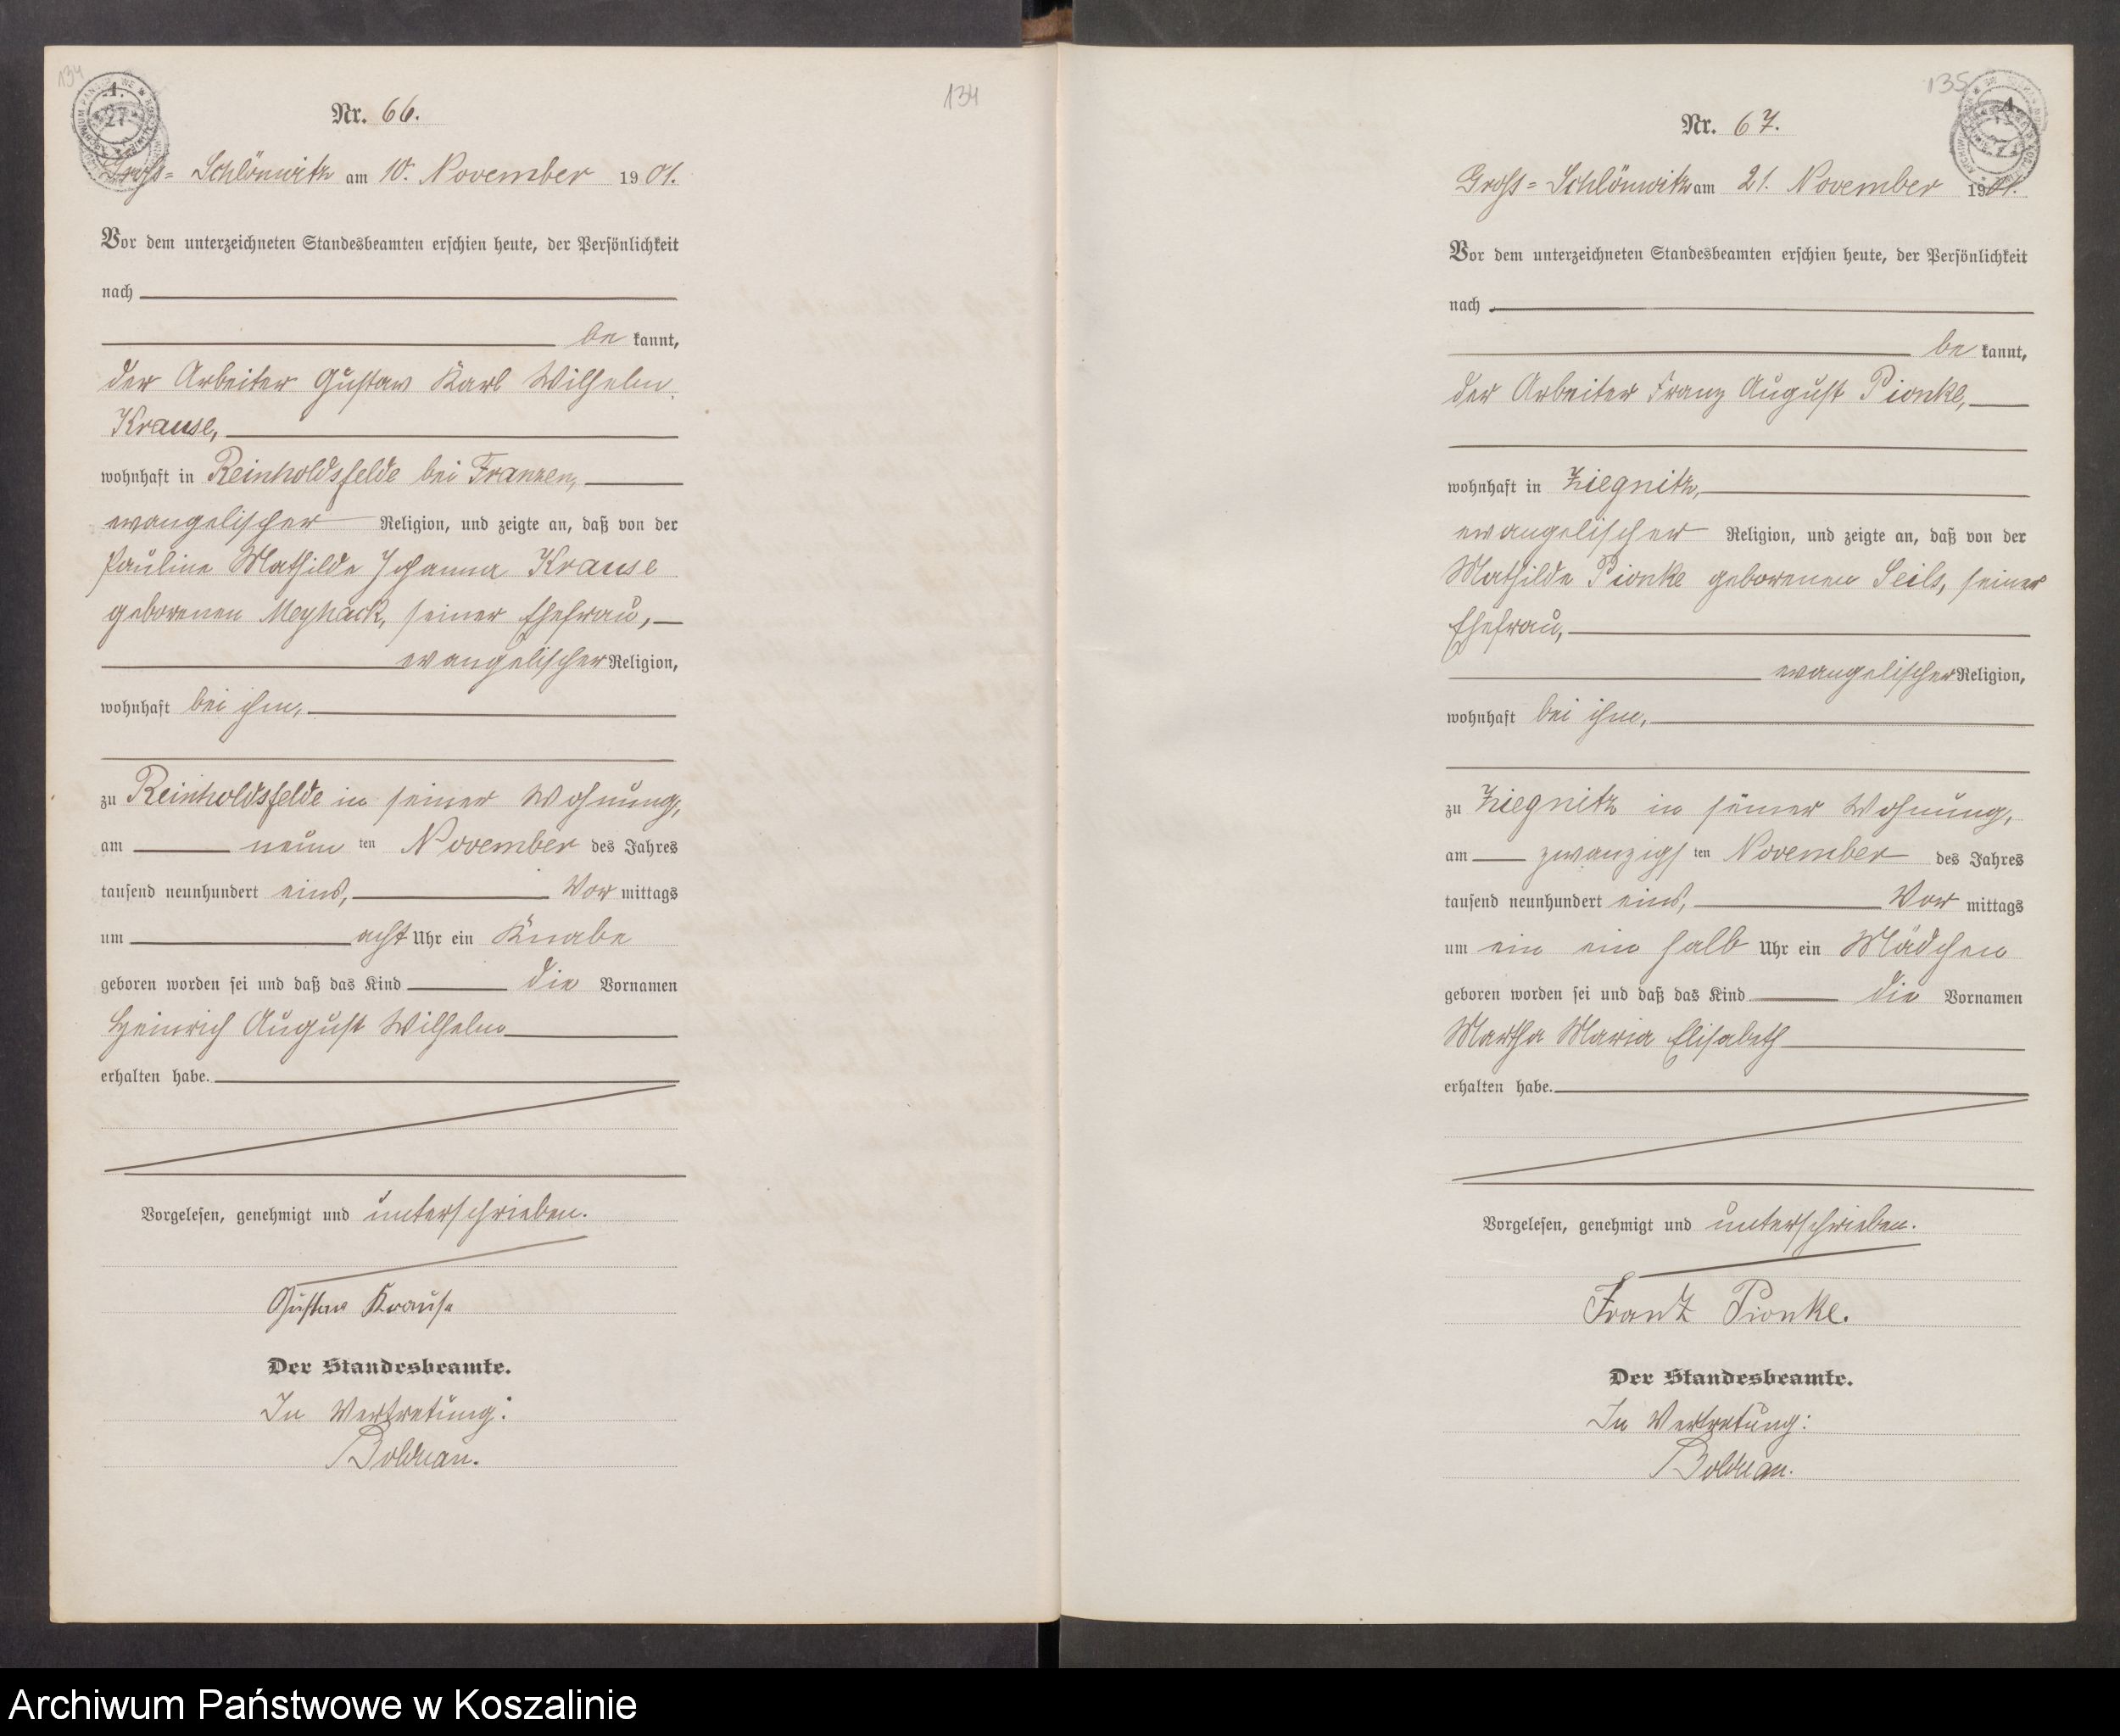 134
134
Nr. 66.
Gross= Schlönwitz am 10. November 1901.
Vor dem unterzeichneten Standesbeamten erschien heute, der Persönlichkeit
nach
be kannt,
der Arbeiter Gustav Karl Wilhelm
Krause,
wohnhaft in Reinholdsfelde bei Franzen,
evangelischer Religion, und zeigte an, daß von der
Pauline Mathilde Johanna Krause
geborenen Meyhack, seiner Ehefrau,
evangelischer Religion,
wohnhaft bei ihm,
zu Reinholdsfelde in seiner Wohnung,
am neun ten November des Jahres
tausend neunhundert eins, Vor mittags
um acht Uhr ein Knabe
geboren worden sei und daß das Kind die Vornamen
Heinrich August Wilhelm
erhalten habe.
Vorgelesen, genehmigt und unterschrieben.
Gustav Krause
Der Standesbeamte.
In Vertretung:
Bolduan.
135
Nr. 67.
Gross= Schlönwitz am 21. November 1901.
Vor dem unterzeichneten Standesbeamten erschien heute, der Persönlichkeit
nach
be kannt,
der Arbeiter Franz August Pionke,
wohnhaft in Ziegnitz,
evangelischer Religion, und zeigte an, daß von der
Mathilde Pionke geborenen Seils, seiner
Ehefrau,
evangelischer Religion,
wohnhaft bei ihm,
zu Ziegnitz in seiner Wohnung,
am zwanzigs ten November des Jahres
tausend neunhundert eins, Vor mittags
um ein ein halb Uhr ein Mädchen
geboren worden sei und daß das Kind die Vornamen
Martha Maria Elisabeth
erhalten habe.
Vorgelesen, genehmigt und unterschrieben.
Franz Pionke.
Der Standesbeamte.
In Vertretung:
Bolduan.
Archiwum Państwowe w Koszalinie